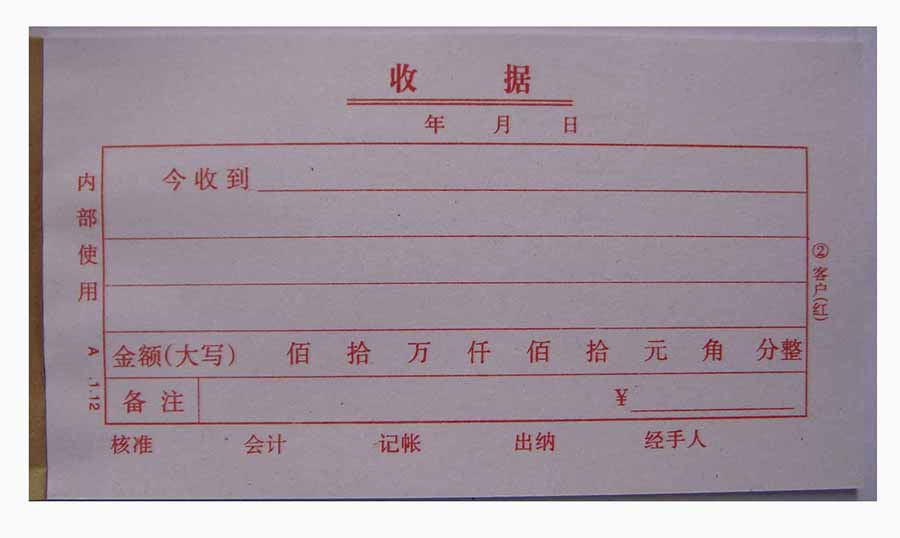 收据
年 月 日
今收到
金额(大写) 佰 拾 万 仟 佰 拾 元 角 分整
备注 ¥
核准 会计 记帐 出纳 经手人
内部使用
A .1.12
②客户(红)